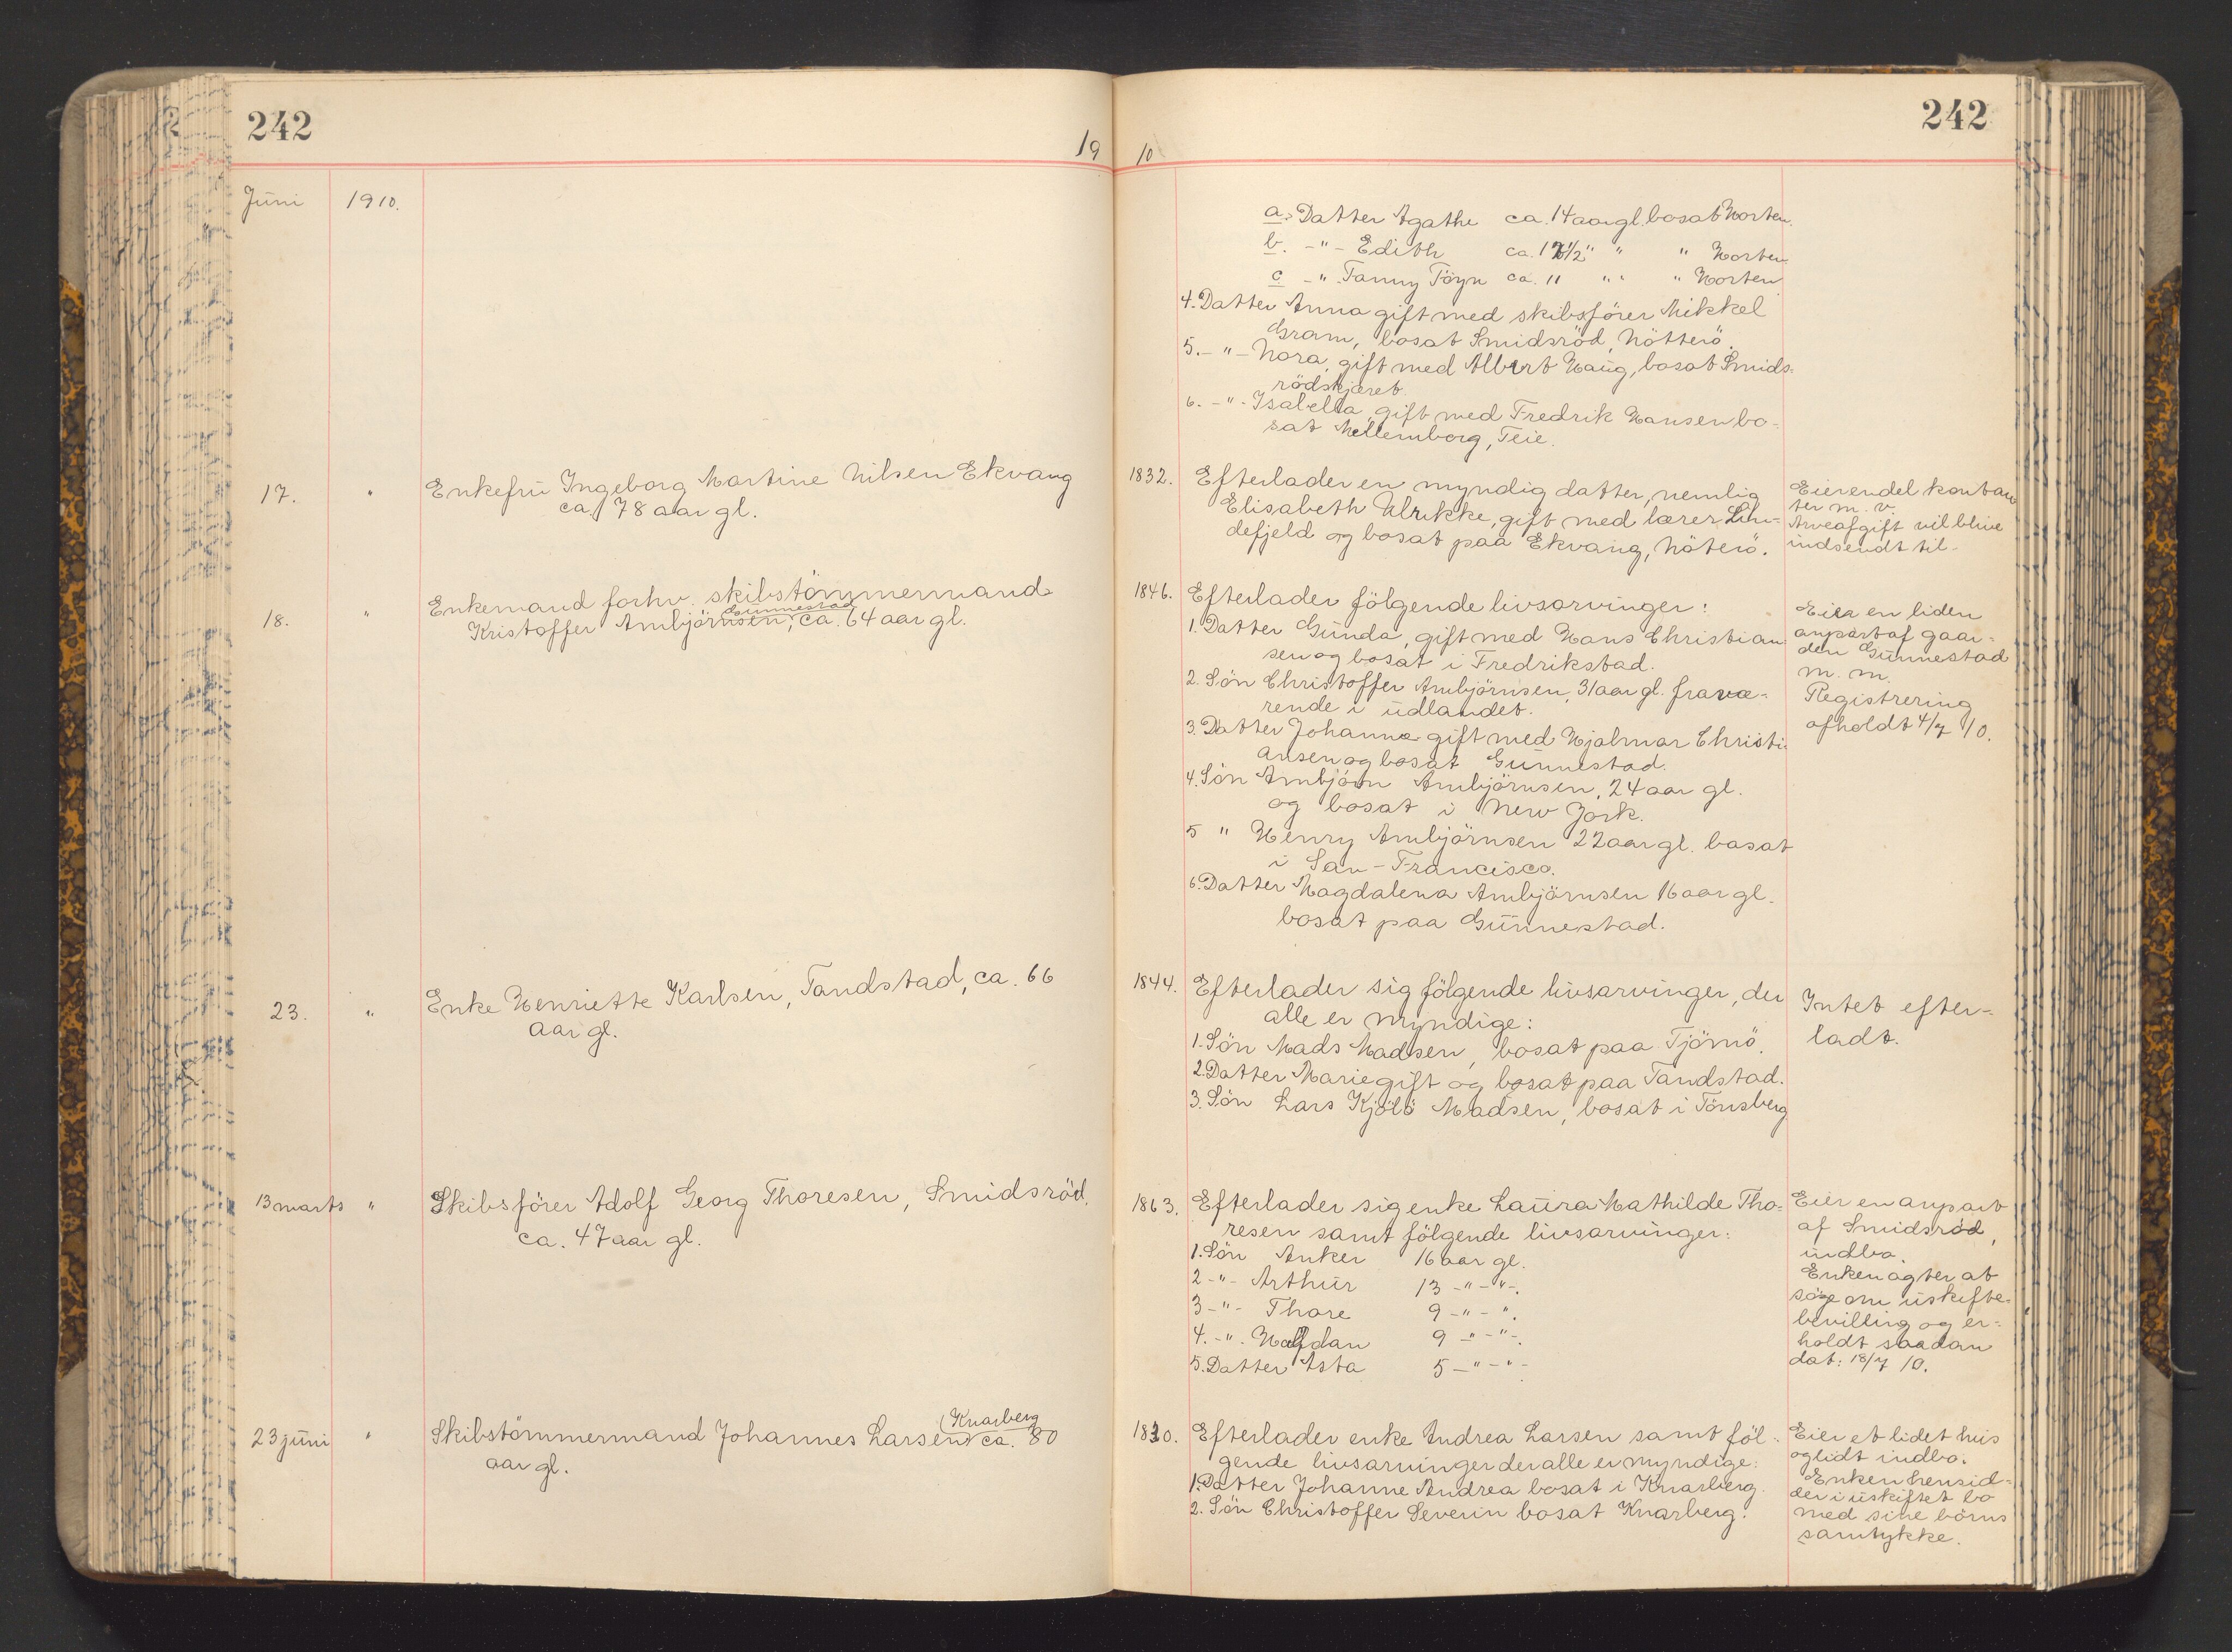 242
242
19 10
Juni 1910.
a. Datter Agathe ca. 14 aar gl. bosat Horten.
b. -"- Edith ca. 12½ " " " Horten
c -" Fanny Töyn ca. 11 " " " Horten
4. Datter Anna gift med skibsförer Mikkel
Gram, bosat Smidsröd, Nötterö.
5. -"- Nora, gift med Albert Haug, bosat Smids=
rödskjæret.
6. -"- Isabella, gift med Fredrik Hansen bo-
sat Mellemborg, Teie.
17. " Enkefru Ingeborg Martine Nilsen Ekvang
ca. 78 aar gl.
1832. Efterlader en myndig datter, nemlig
Elisabeth Ulrikke, gift med lærer Lin=
defjeld og bosat paa Ekvang, Nöterö.
Eier endel kontan
ter m. v.
Arveafgift vil blive
indsendt til-
18. " Enkemand forhv. skibstömmermand
Kristoffer Ambjörnsen, Gunnestad ca. 64 aar gl.
1846. Efterlader fölgende livsarvinger:
1. Datter Gunda, gift med Hans Christian
sen og bosat i Fredrikstad.
2. Sön Christoffer Ambjörnsen, 31 aar gl. fravæ-
rende i udlandet.
3. Datter Johanna gift med Hjalmar Christi-
ansen og bosat Gunnestad.
4. Sön Ambjörn Ambjörnsen, 24 aar gl.
og bosat i New York.
5 " Henry Ambjörnsen 22 aar gl. bosat
i San-Francisco.
6. Datter Magdalena Ambjörnsen 16 aar gl.
bosat paa Gunnestad.
Eier en liden
anpart af gaar=
den Gunnestad
m. m.
Registrering
afholdt 4/7 10.
23. " Enke Henriette Karlsen, Tandstad, ca. 66
aar gl.
1844. Efterlader sig fölgende livsarvinger, der
alle er myndige:
1. Sön Mads Madsen, bosat paa Tjömö.
2. Datter Marie gift og bosat paa Tandstad.
3. Sön Lars Kjölö Madsen, bosat i Tönsberg
Intet efter-
ladt.
13 marts " Skibsförer Adolf Georg Thoresen, Smidsröd,
ca. 47 aar gl.
1863. Efterlader sig enke Laura Mathilde Tho=
resen samt fölgende livsarvinger:
1. Sön Anker 16 aar gl.
2 -"- Arthur 13 -"-"-.
3 -"- Thore 9 -"-".
4. -"- Halfdan 9 -"-"-.
5. Datter Asta 5 -"-"-.
Eier en anpart
af Smidsröd,
indbo.
Enken agter at
söge om uskifte-
bevilling og er=
holdt saadan
dat: 18/7 10.
23 juni " Skibstömmermand Johannes Larsen Knarberg ca. 80
aar gl.
1830. Efterlader enke Andrea Larsen samt föl-
gende livsarvinger der alle er myndige:
1. Datter Johanne Andrea bosat i Knarberg.
2. Sön Christoffer Severin bosat Knarberg.
Eier et lidet hus
og lidt indbo.
Enken hensid=
der i uskiftet bo
med sine börns
samtykke.